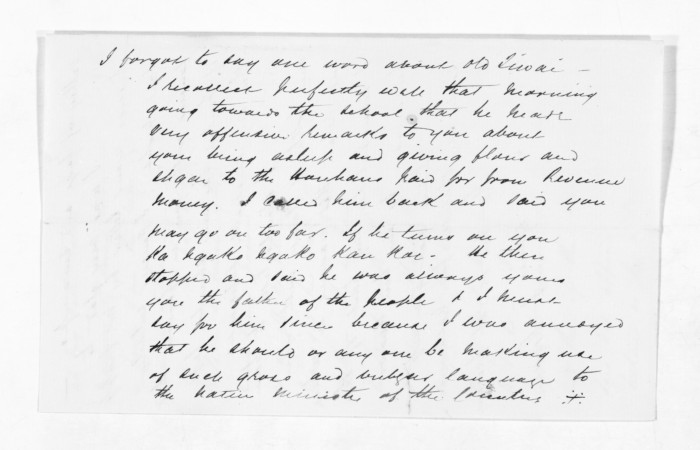 I forgot to say one word about old Tiwai –
I recollect perfectly well that morning
going towards the school that he made
very offensive remarks to you about
your being asleep and giving flour and
sugar to the Hauhaus paid for from Revenue
money. I called him back and said you
may go on too far. If he turns on you
ka ngako ngako kau koe. He then
stopped and said he was always yours
you the father of the people & I
say for him since because I was annoyed
that he should or any one be making use
of such gross and vulgar language to
the native minister of the